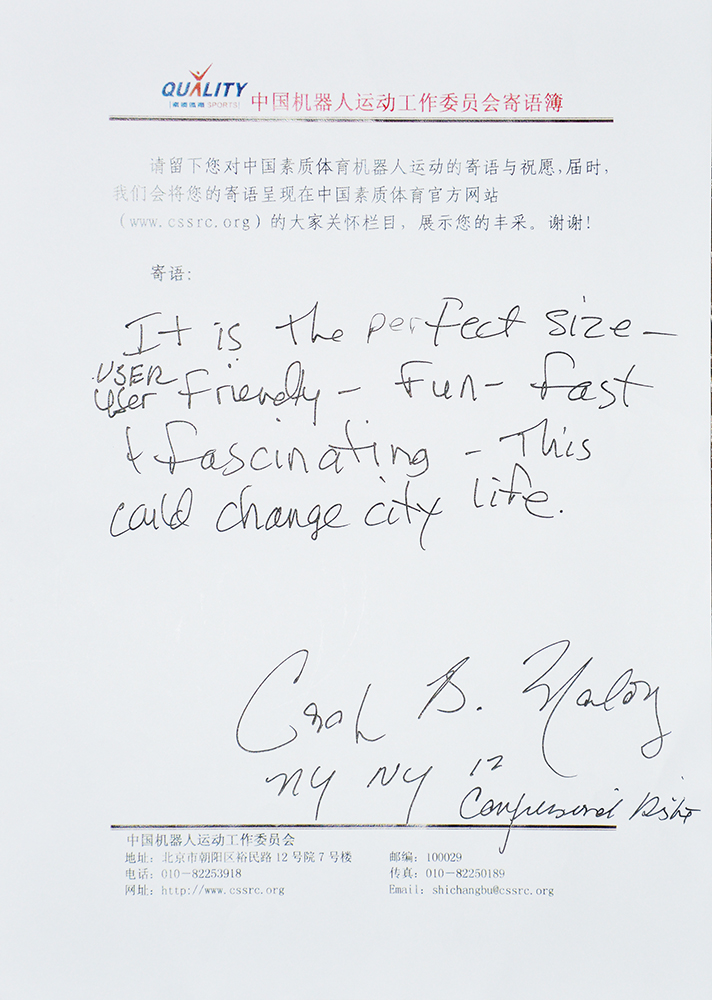 QUALITY
素质体育 SPORTS
中国机器人运动工作委员会寄语簿
请留下您对中国素质体育机器人运动的寄语与祝愿,届时,
我们会将您的寄语呈现在中国素质体育官方网站
(www.cssrc.org)的大家关怀栏目,展示您的丰采。谢谢!
寄语:
It is the perfect size -
USER
user friendly - fun - fast
& fascinating - This
could change city life.
Carol B. Maloney
NY NY 12
Congressional District
中国机器人运动工作委员会
地址: 北京市朝阳区裕民路 12 号院 7 号楼 邮编: 100029
电话: 010-82253918 传真: 010-82250189
网址: http://www.cssrc.org Email: shichangbu@cssrc.org